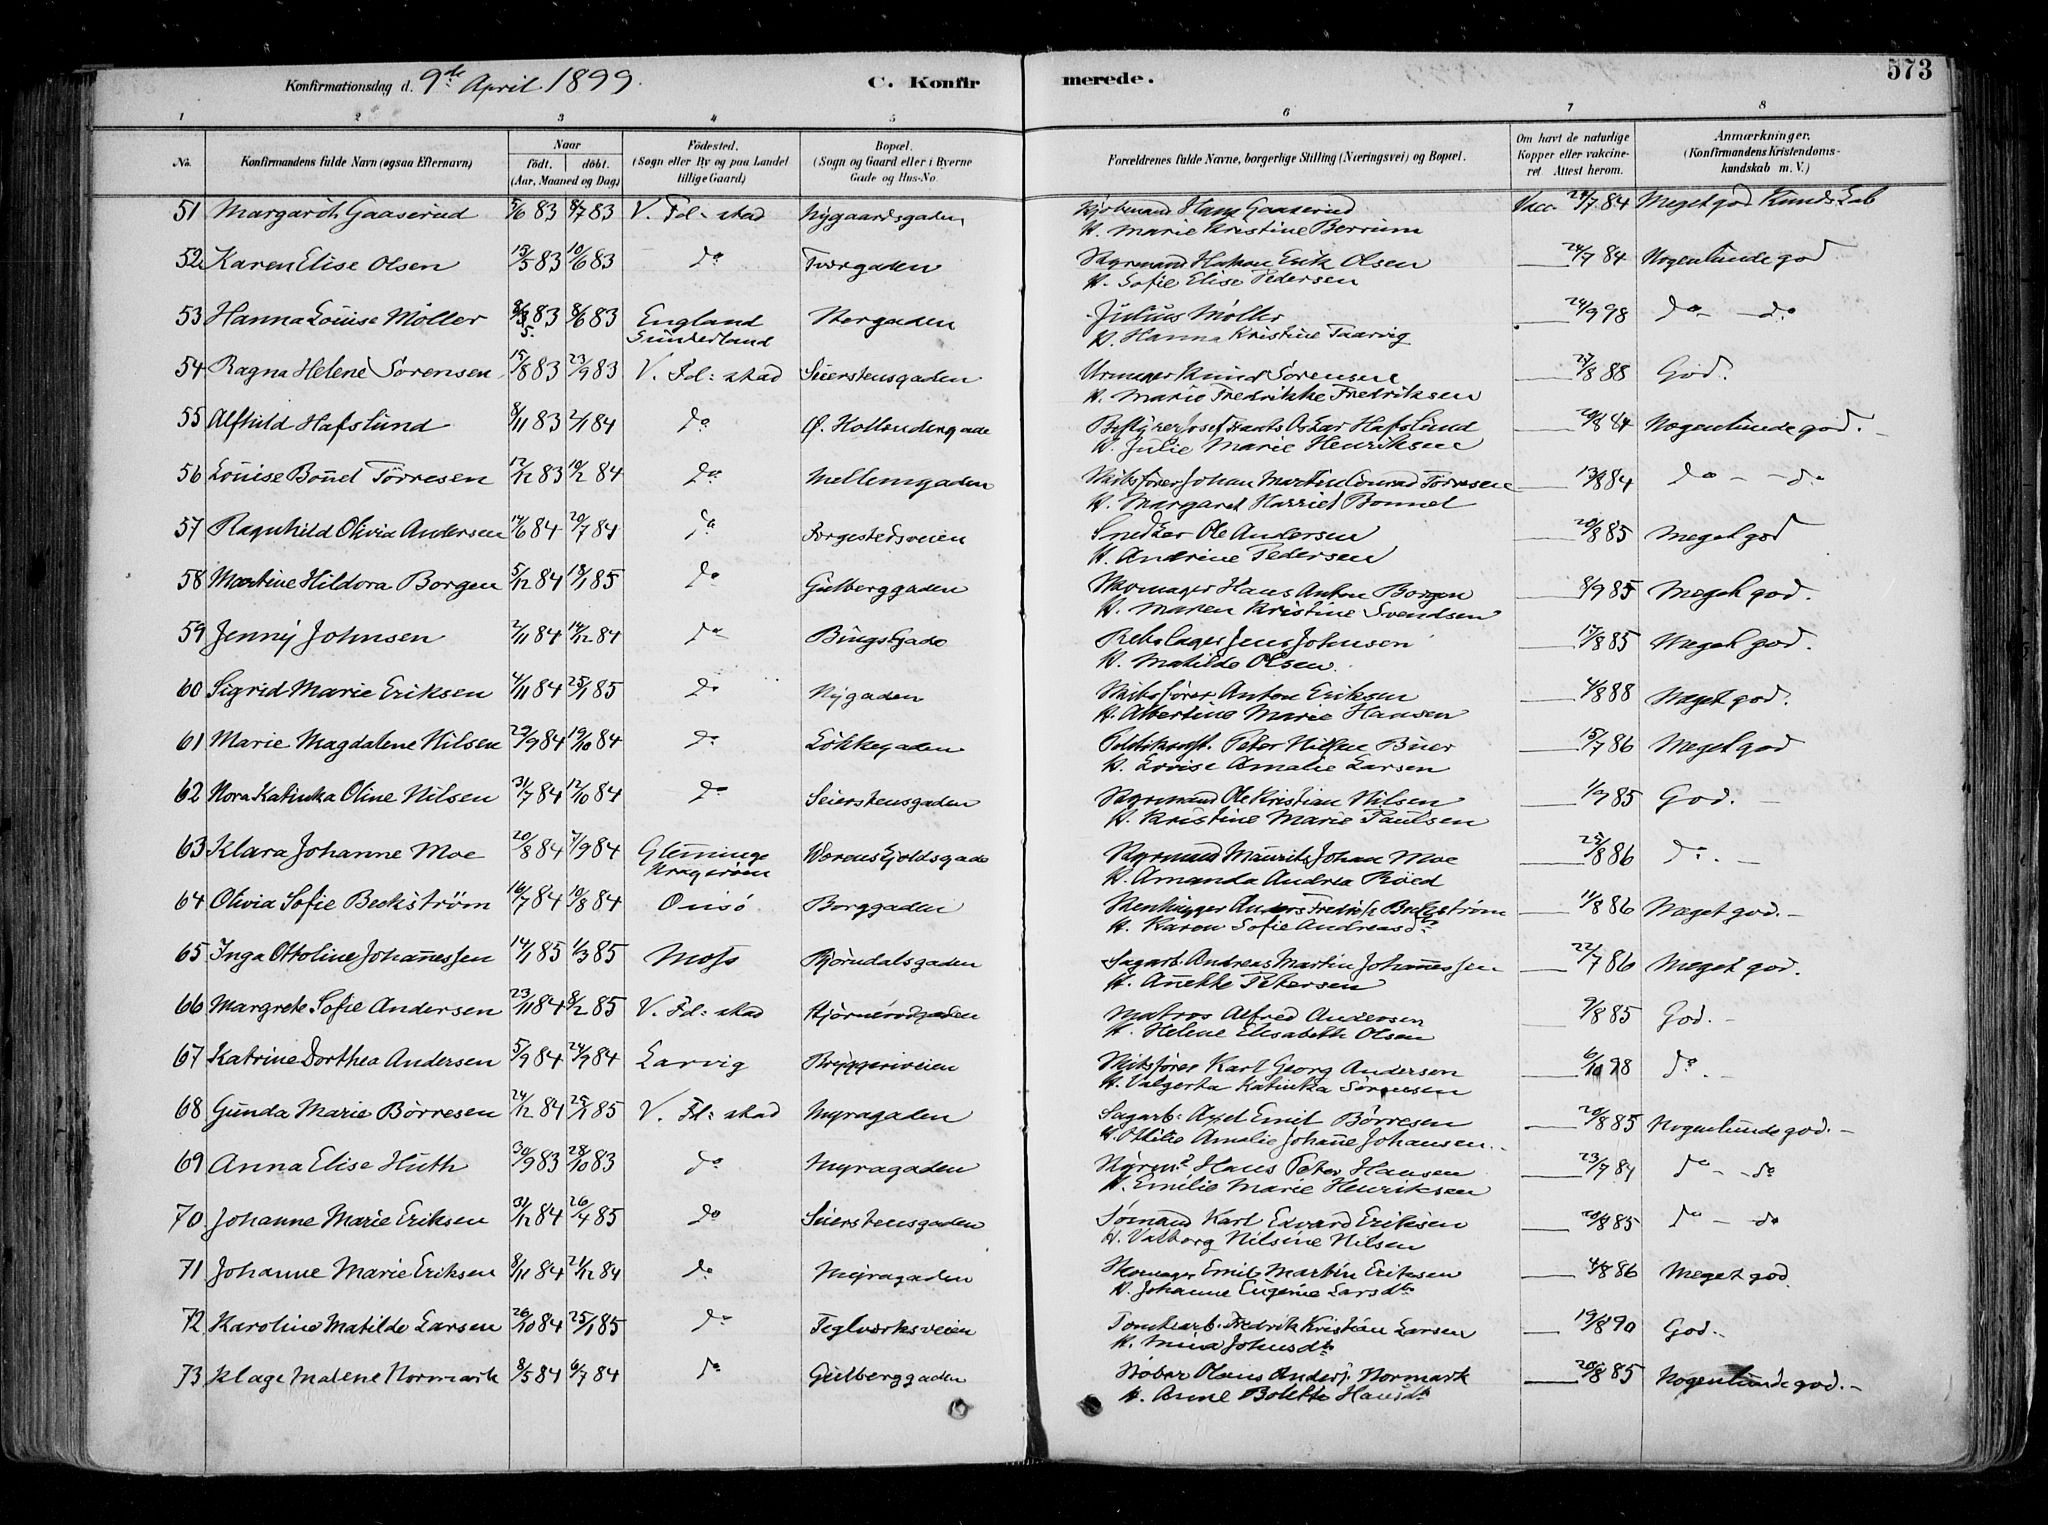 Konfirmationsdag d. 9de April 1899. C. Konfir merede. 573
1 2 3 4 5 6 7 8
No. Konfirmandens fulde Navn (ogsaa Efternavn) Naar født. døbt. (Aar, Maaned og Dag) Fødested. (Sogn eller By og paa Landet tillige Gaard) Bopæl. (Sogn og Gaard eller i Byerne Gade og Hus-No. Forældrenes fulde Navne, borgerlige Stilling (Næringsvei) og Bopæl. Om havt de naturlige Kopper eller vakcineret Attest herom. Anmærkninger. (Konfirmandens Kristendomskundskab m. V.)
51 Margareth Gaaserud 5/6 83 8/7 83 V. Fd: stad Nygaardsgaden Hans Gaaserud Vacc. 24/7 84 Meget god Kundskab
H. Marie Kristine Berrum
52 Karen Elise Olsen 13/5 83 10/6 83 do Tværgaden Styrmand Erik Olsen 24/7 84 Nogenlunde god
H. Sofie Elise Pedersen
53 Hanna Louise Møller 83 8/6 83 England Storgaden Julius Møller 24/9 98 do - do
Sunderland H. Hanna Kristine Taarvig
54 Ragna Helene Sørensen 15/8 83 23/9 83 V. Fd: stad Seierstensgaden Urmager Knud Sørensen 27/8 88 God.
H. Marie Fredrikke Fredriksen
55 Alfhild Hafslund 8/11 83 2/1 84 do Ø. Hollendergade Bestyrer Josef Oskar Hafslund 20/8 84 Nogenlunde god. -
H. Julie Marie Henriksen
56 Louise Bonel Tørresen 12/12 83 10/2 84 do Mellemgaden Skibsfører Johan Martin Conrad Tørresen 13/8 84 do - - do
H. Margaret Harriet Bonnel
57 Ragnhild Olivia Andersen 14/6 84 20/7 84 do Torgestedsveien Snedker Ole Andersen 20/8 85 Meget god
H. Andrine Pedersen
58 Martine Hildora Borgen 5/12 84 18/1 85 do Gulberggaden Skomager Hans Anton Borgen 8/9 85 Meget god.
H. Maren Kristine Svendsen
59 Jenny Johnsen 2/11 84 14/12 84 do Bings Gade Rebslager Jens Johnsen 17/8 85 Meget god.
H. Matilde Olsen.
60 Sigrid Marie Eriksen 4/11 84 25/1 85 do Nygaden Skibsfører Anton Eriksen 4/8 88 Meget god.
H. Albertine Marie Hansen
61 Marie Magdalene Nilsen 29/9 84 19/10 84 do Løkkegaden Peter Nilsen Buer 15/7 86 Meget god
H. Lovise Amalie Larsen
62 Nora Katinka Oline Nilsen 31/7 84 12/10 84 do Seierstensgaden Styrmand Ole Kristian Nilsen 1/9 85 God. -
H. Kristine Marie Paulsen
63 Klara Johanne Moe 20/8 84 7/9 84 Glemminge Werenskjoldsgade Styrmand Maurits Johan Moe 25/8 86 do. -
Kragerøen H. Amanda Andrea Røed
64 Olivia Sofie Beckstrøm 16/7 84 10/8 84 Onsø Borggaden Stenhugger Anders Fredrik Beckstrøm 11/8 86 Meget god. -
H. Karen Sofie Andreasdr
65 Inga Ottoline Johannessen 14/1 85 1/3 85 Moss Bjørndalsgaden Sagarb. Andreas Martin Johannessen 22/7 86 Meget god.
H. Anette Petersen
66 Margrete Sofie Andersen 23/11 84 8/2 85 V. Fd: stad Hjørnerødgaden Matros Alfred Andersen 9/8 85 God. -
H. Helene Elisabeth Olsen
67 Katrine Dorthea Andersen 5/9 84 24/9 84 Larvig Bryggeriveien Skibsfører Karl Georg Andersen 6/10 98 do. -
H. Valgerta Katinka Sørensen
68 Gunda Marie Børresen 24/12 84 25/1 85 V. Fd: stad Myragaden Sagarb: Axel Emil Børresen 20/8 85 Nogenlunde god. -
H. Othilie Amalie Johanne Johansen
69 Anna Elise Huth 30/9 83 28/10 83 do Myragaden Styrmd Hans Peter Hansen 23/7 84 do - do
H. Emilie Marie Henriksen
70 Johanne Marie Eriksen 31/12 84 26/4 85 do Seierstensgaden Sømand Karl Edvard Eriksen 20/8 85 do - do
H. Valborg Nilsine Nilsen
71 Johanne Marie Eriksen 8/11 84 21/12 84 do Myragaden Skomager Emil Martin Eriksen 4/8 86 Meget god.
H. Johanne Eugenie Larsdtr
72 Karoline Matilde Larsen 26/10 84 25/1 85 do Teglværksveien Tomtearb. Fredrik Kristian Larsen 19/8 90 God. -
H. Mina Johnsdtr
73 Klage Malene Normark 8/5 84 6/7 84 do Gulberggaden Støber Olaus Anders. Normark 20/8 85 Nogenlunde god. -
H. Anne Bolette Hansdtr